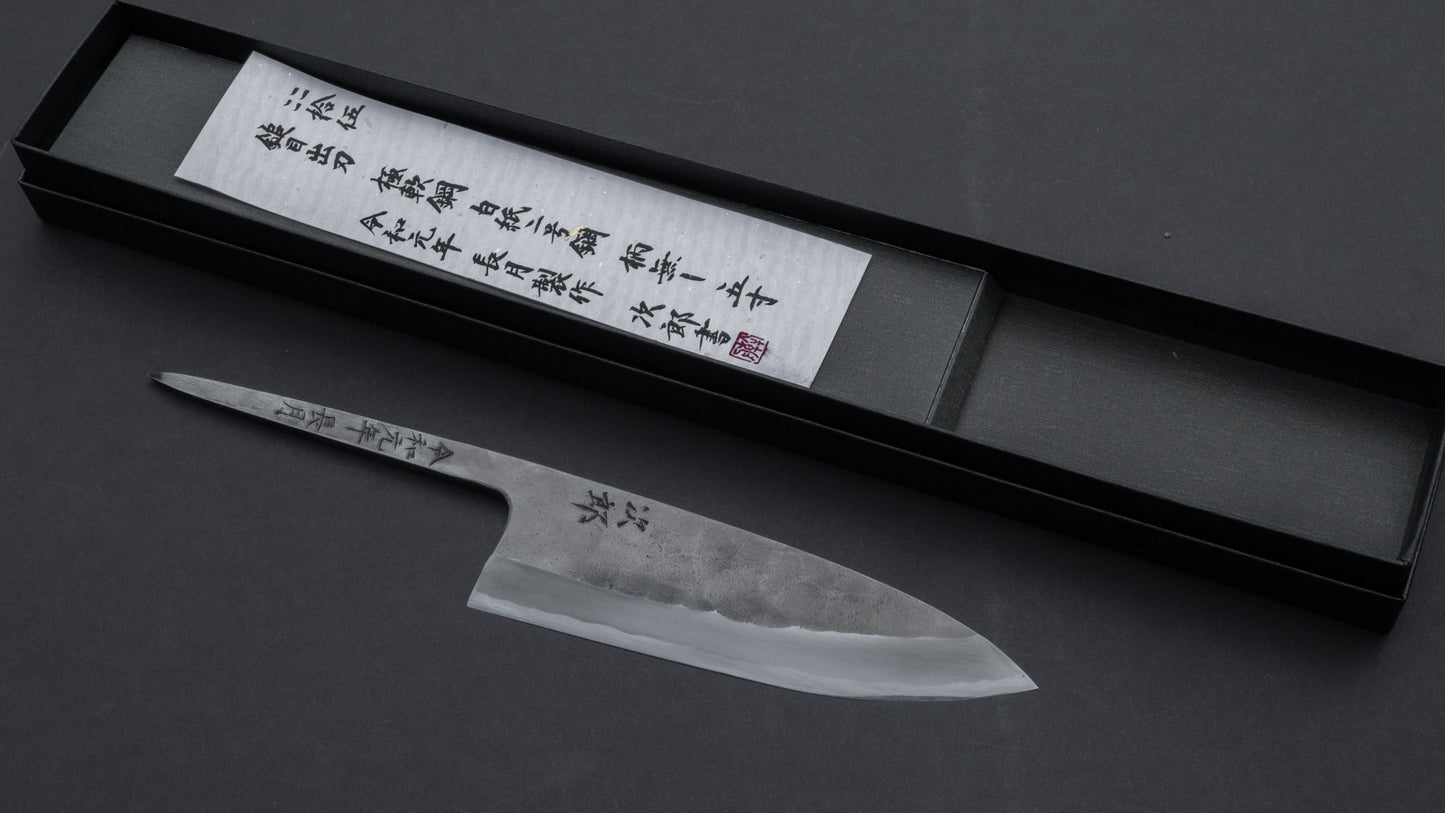 拾伍
鎚目出刃 極軟鋼 白紙二号鋼 柄無し 五寸
令和元年 長月製作 次郎書
令和元年長月
次郎